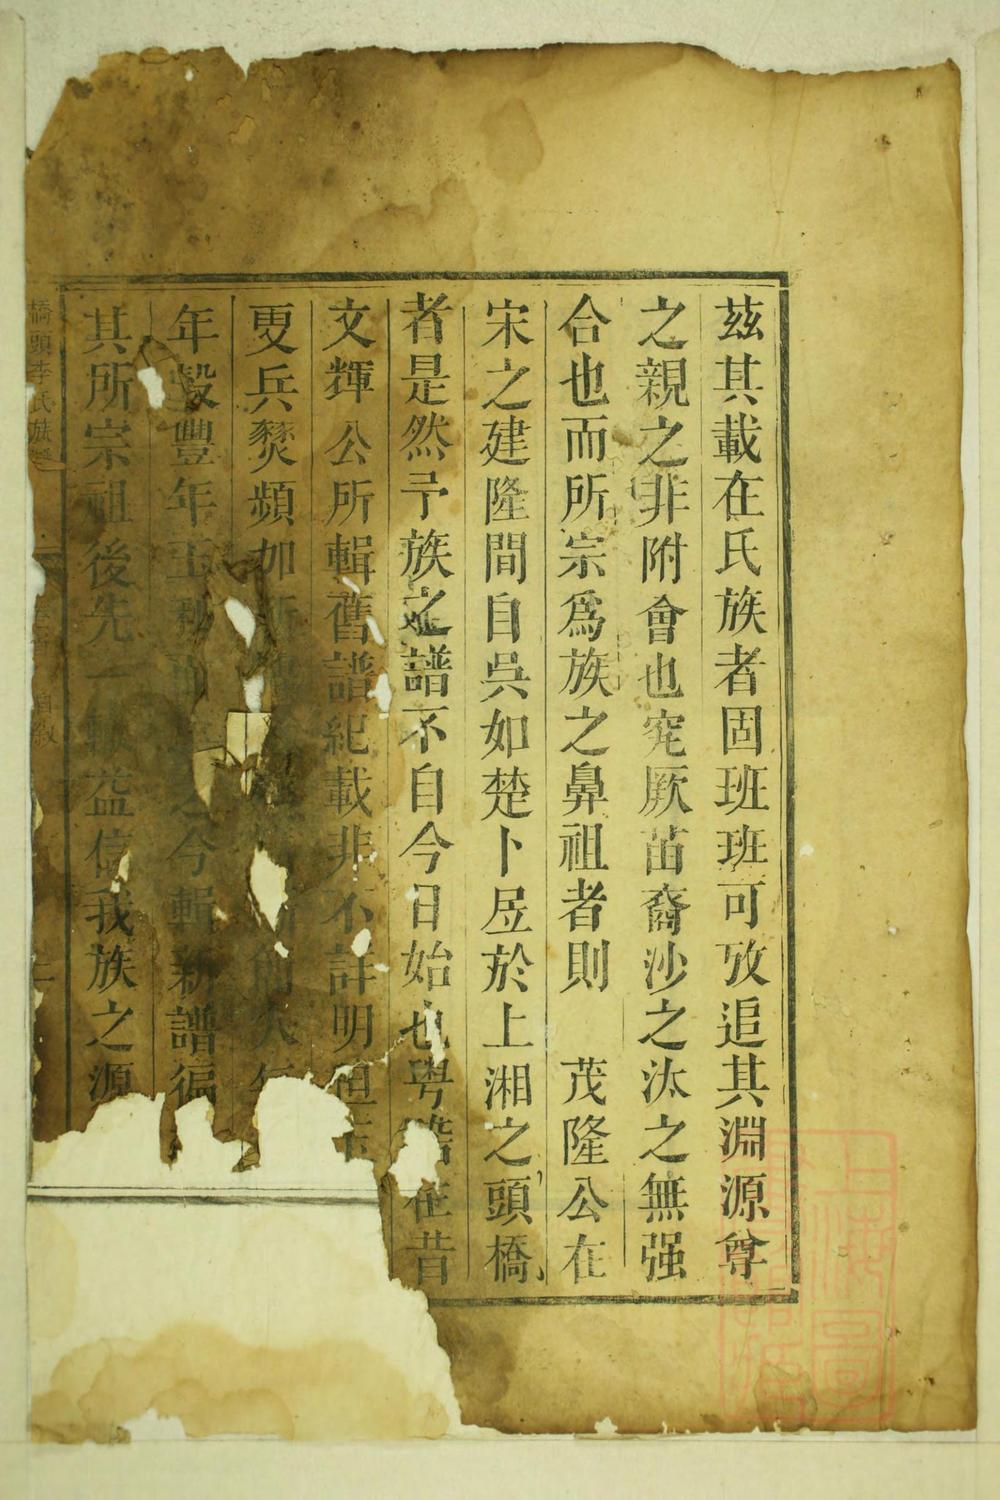 茲其載在氏族者固班班可攷追其淵源尊
之親之非附會也究厥苗裔沙之汰之無强
合也而所宗爲族之鼻祖者則　茂隆公在
宋之建隆間自吳如楚卜居於上湘之頭橋
者是然予族之譜不自今日始也粤稽在昔
文輝公所輯舊譜紀載非不詳明
更兵燹頻加
年穀豐年玉 今輯新譜徧
其所宗祖後先一 益信我族之源
橋頭李氏族譜